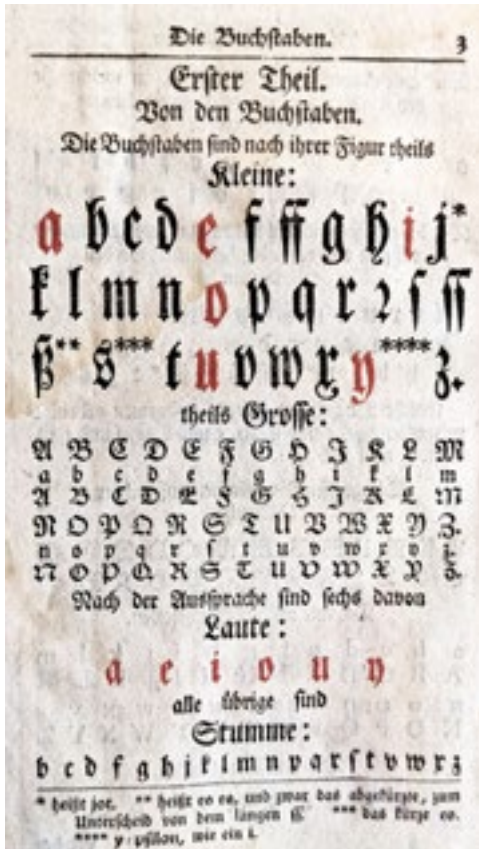 Die Buchſtaben. 3
Erſter Theil.
Von den Buchſtaben.
Die Buchſtaben ſind nach ihrer Figur theils
Kleine:
a b c d e f ff g h i j*
k l m n o p q r ꝛ ſ ſſ
ß** s*** t u v w x y**** z.
theils Groſſe:
A B C D E F G H J K L M
a b c d e f g h i k l m
A B C D E F G H J K L M
N O P Q R S T U V W X Y Z.
n o p q r ſ t u v w x y z.
N O P Q R S T U V W X Y Z.
Nach der Ausſprache ſind ſechs davon
Laute:
a e i o u y
alle übrige ſind
Stumme:
b c d f g h j k l m n p q r ſ t v w x z
* heißt jot. ** heißt es es, und zwar das abgekürzte, zum
Unterſcheid von dem langen ſſ. *** das kürze es.
**** y pſilon, wie ein i.